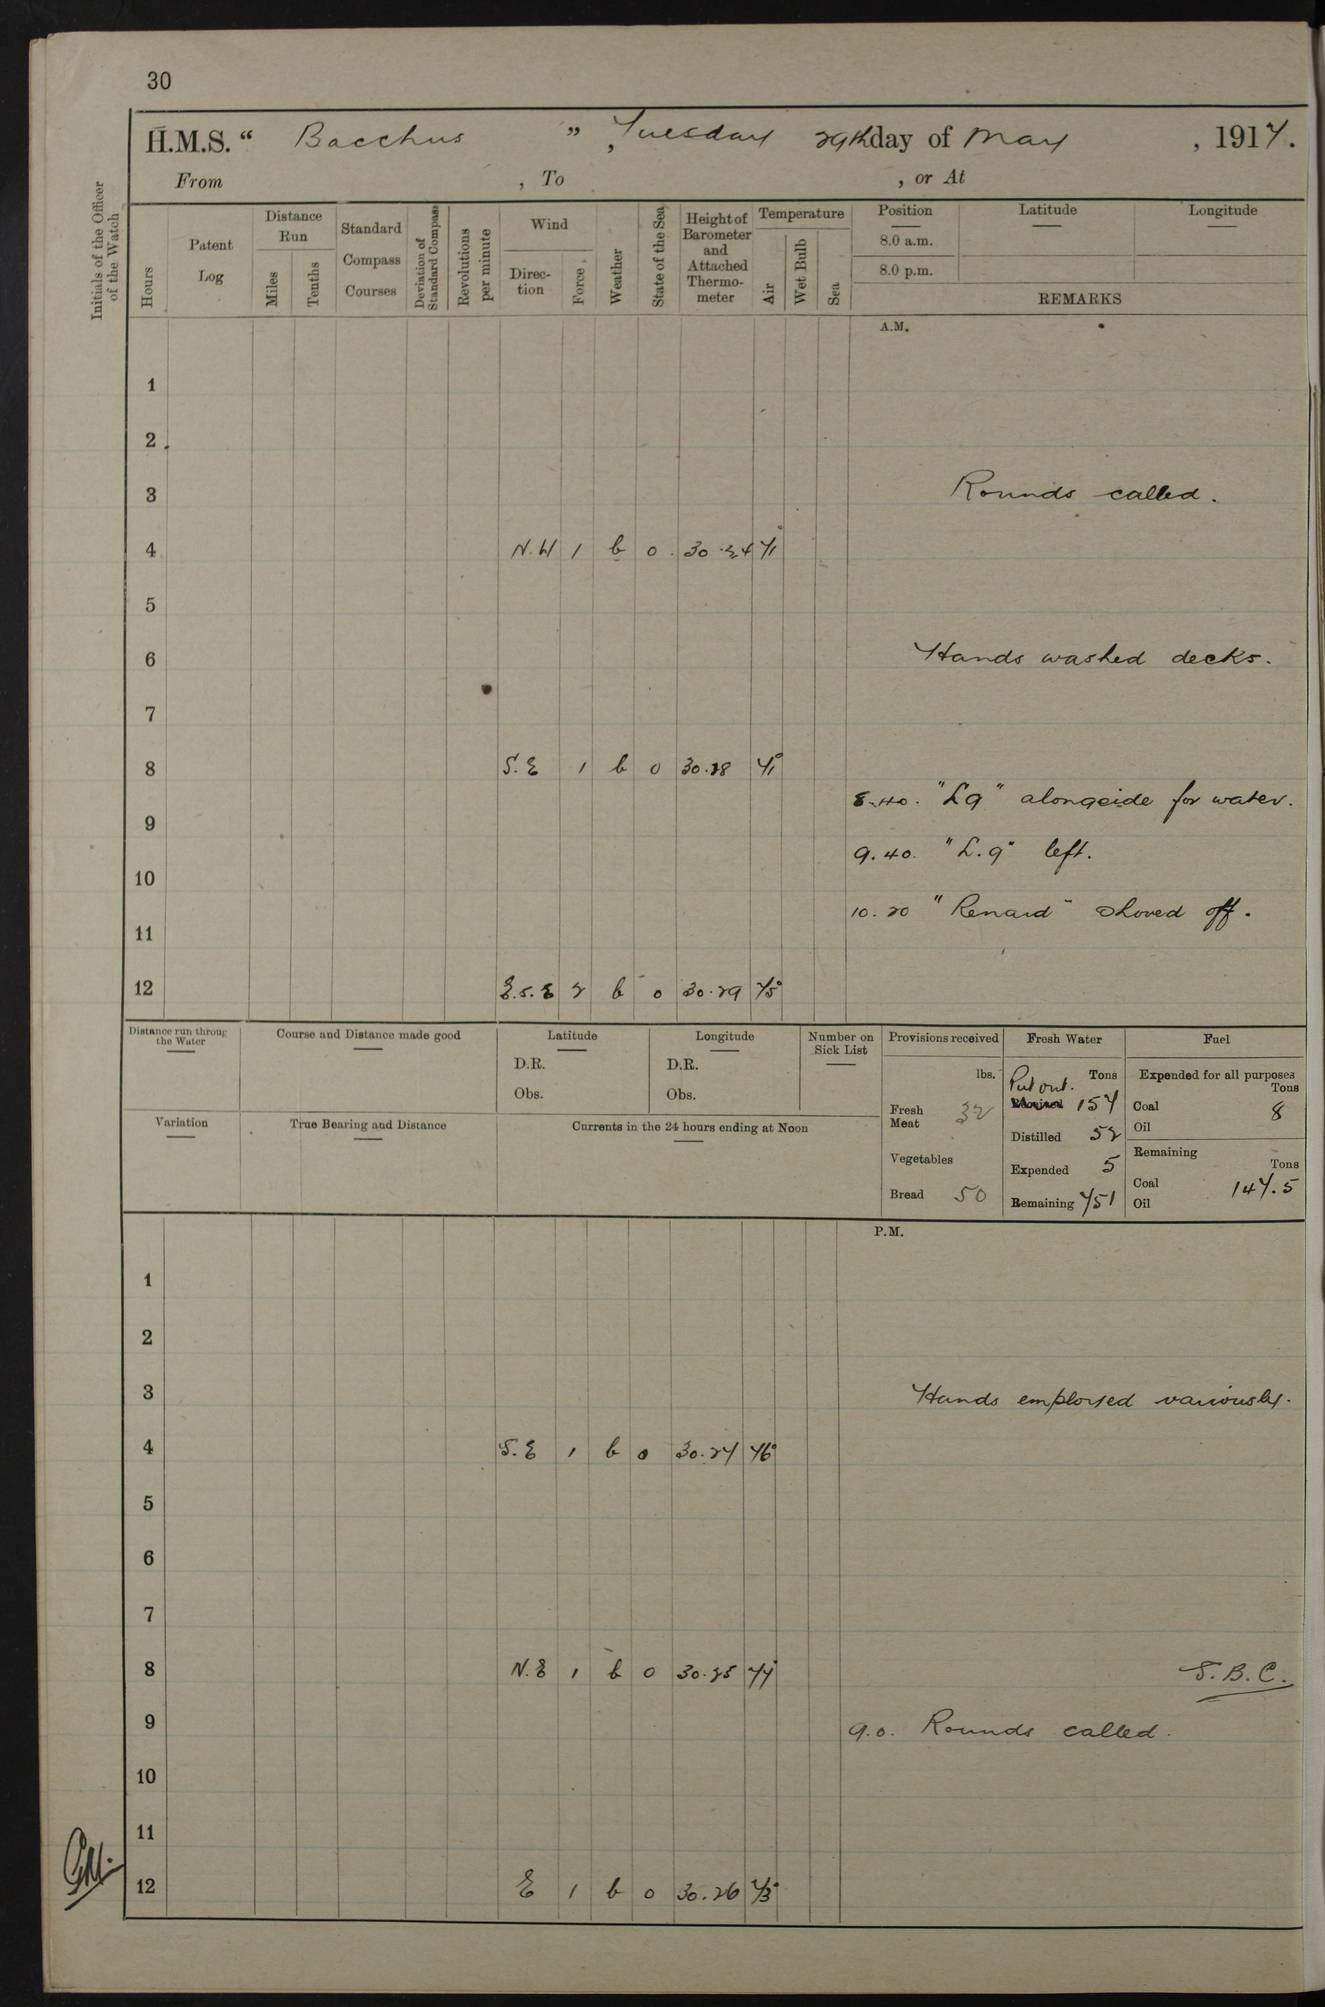 30
H.M.S. “ Bacchus ” , Tuesday 29th day of May , 1917.
From , To , or At
Initials of the Officer of the Watch
Hours
Patent Log
Distance Run
Miles
Tenths
Standard Compass Courses
Deviation of Standard Compass
Revolutions per minute
Wind
Direc-tion
Force
Weather
State of the Sea
Height of Barometer and Attached Thermo-meter
Temperature
Air
Wet Bulb
Sea
Position
8.0 a.m.
8.0 p.m.
Latitude
Longitude
REMARKS
A.M.
1
2
3 Rounds called.
4 N.W 1 b 0 30.24 71°
5
6 Hands washed decks.
7
8 S.E 1 b 0 30.28 71°
8.40. "L9" alongside for water.
9
9.40. "L.9" left.
10
10.20 "Renard" shoved off.
11
12 E.S.E 2 b 0 30.29 75°
Distance run throug the Water
Course and Distance made good
Latitude
D.R.
Obs.
Longitude
D.R.
Obs.
Number on Sick List
Provisions received
lbs.
Fresh Meat 32
Vegetables
Bread 50
Fresh Water
Tons
Put out. 157
Distilled 52
Expended 5
Remaining 751
Fuel
Expended for all purposes
Tons
Coal 8
Oil
Remaining
Tons
Coal 147.5
Oil
Variation
True Bearing and Distance
Currents in the 24 hours ending at Noon
P.M.
1
2
3 Hands employed variously.
4 S.E 1 b 0 30.27 76°
5
6
7
8 N.E 1 b 0 30.25 77° S.B.C.
9 9.0. Rounds called.
10
11
12 E 1 b 0 30.26 73°